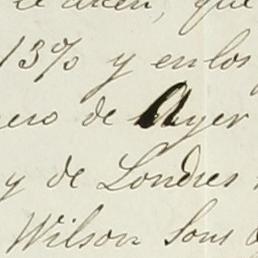 le dicen, que
13% y en los
ero de Ayer
y de Londres
Wilson Sons